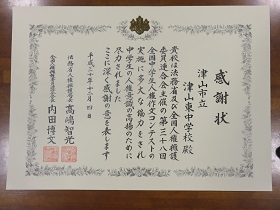 感謝状
津山市立
津山東中学校 殿
貴校は法務省及び全国人権擁護
委員連合会主催の第三十八回
全国中学生人権作文コンテストの
実施に多大な協力をされ
中学生の人権意識の高揚のために
尽力されました
ここに深く感謝の意を表します
平成三十年十二月四日
法務省人権擁護局長 高嶋智光
全国人権擁護委員連合会会長 内田博文